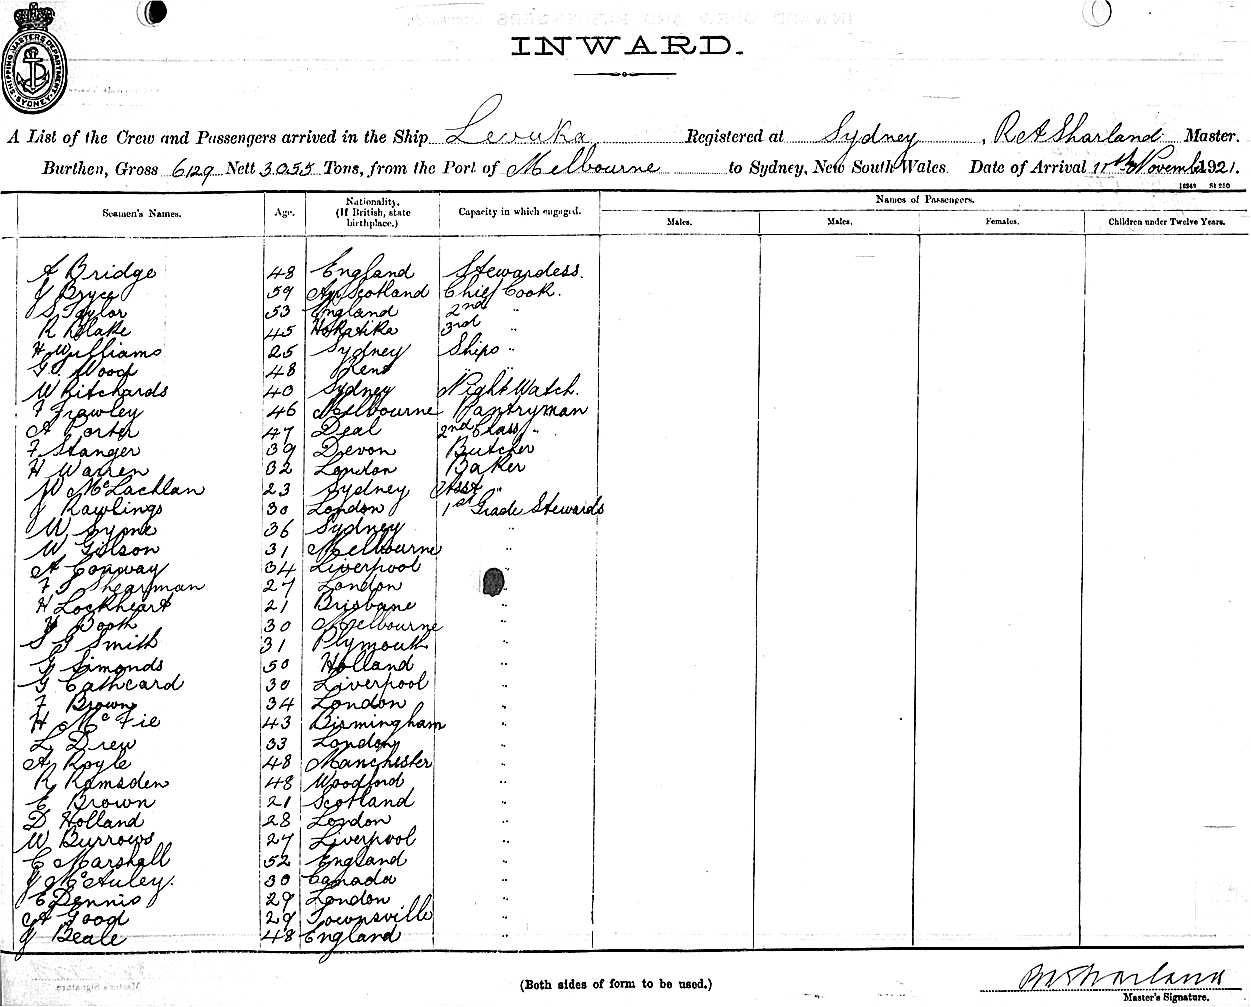 SHIPPING MASTERS DEPARTMENT SYDNEY
INWARD.
A List of the Crew and Passengers arrived in the Ship Levuka Registered at Sydney, R A Sharland Master.
Burthen, Gross 6129 Nett 3055 Tons, from the Port of Melbourne to Sydney, New South Wales. Date of Arrival 11th November 1921.
Seamen's Names. Age. Nationality. (If British, state birthplace.) Capacity in which engaged. Names of Passengers.
Males. Males. Females. Children under Twelve Years.
A Bridge 48 England Stewardess.
J Bryce 59 Scotland Chief Cook.
S Taylor 53 England 2nd "
R Blake 45 Hokatika 3rd "
H Williams 25 Sydney Ships "
Wood 48 Kent " "
W Ritchards 40 Sydney Night Watch.
F Frawley 46 Melbourne Pantryman
A Porter 47 Deal 2nd Class "
F Stanger 39 Devon Butcher
H Warren 32 London Baker
W McLachlan 23 Sydney Asst "
J Rawlings 30 London 1st Grade Stewards
W Syme 36 Sydney "
W Gilson 31 Melbourne "
A Conway 34 Liverpool "
F J Shearman 27 London "
H Lockheart 21 Brisbane "
Booth 30 Melbourne "
S G Smith 31 Plymouth "
G Simonds 50 Holland "
G Cathcard 30 Liverpool "
F Brown 34 London "
H McFie 43 Birmingham "
L Drew 33 London "
A Royle 48 Manchester "
R Ramsden 48 Woodford "
E Brown 21 Scotland "
D Holland 28 London "
W Burrows 27 Liverpool "
C Marshall 52 England "
J McAuley. 30 Canada "
E Dennis 29 London "
A Good 29 Townsville "
J Beale 48 England "
(Both sides of form to be used.)
R A Sharland
Master's Signature.